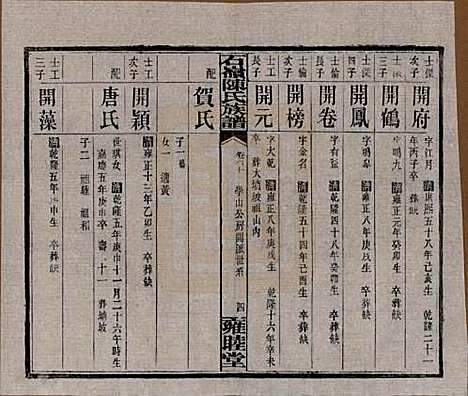 士傑
次子
開府
字江月 清康熙五十八年己亥生 乾隆二十一
年丙子卒 葬缺
士傑
三子
開鶴
字鳴九 清雍正元年癸卯生 卒葬缺
士傑
四子
開鳳
字鳴皋 清雍正八年庚戌生 卒葬缺
士倫
長子
開卷
字有益 清乾隆四十八年癸卯生 卒葬缺
士倫
次子
開榜
字金名 清乾隆五十四年己酉生 卒葬缺
士工
長子
開元
字大乾 清雍正八年庚戌生 乾隆十六年辛未
卒 葬大塘坡祖山內
石嶺陳氏族譜
卷二十
學山公房開派世系
四
雍睦堂
配
賀氏
子一
女一 適黃
士工
次子
開穎
清雍正十三年乙卯生 卒葬缺
配
唐氏
世琪女 清乾隆五年庚申十一月二十六午時生
嘉慶五年庚申卒 壽六十一 葬塘坡
子二
士工
三子
開藻
清乾隆五年庚申生 卒葬缺